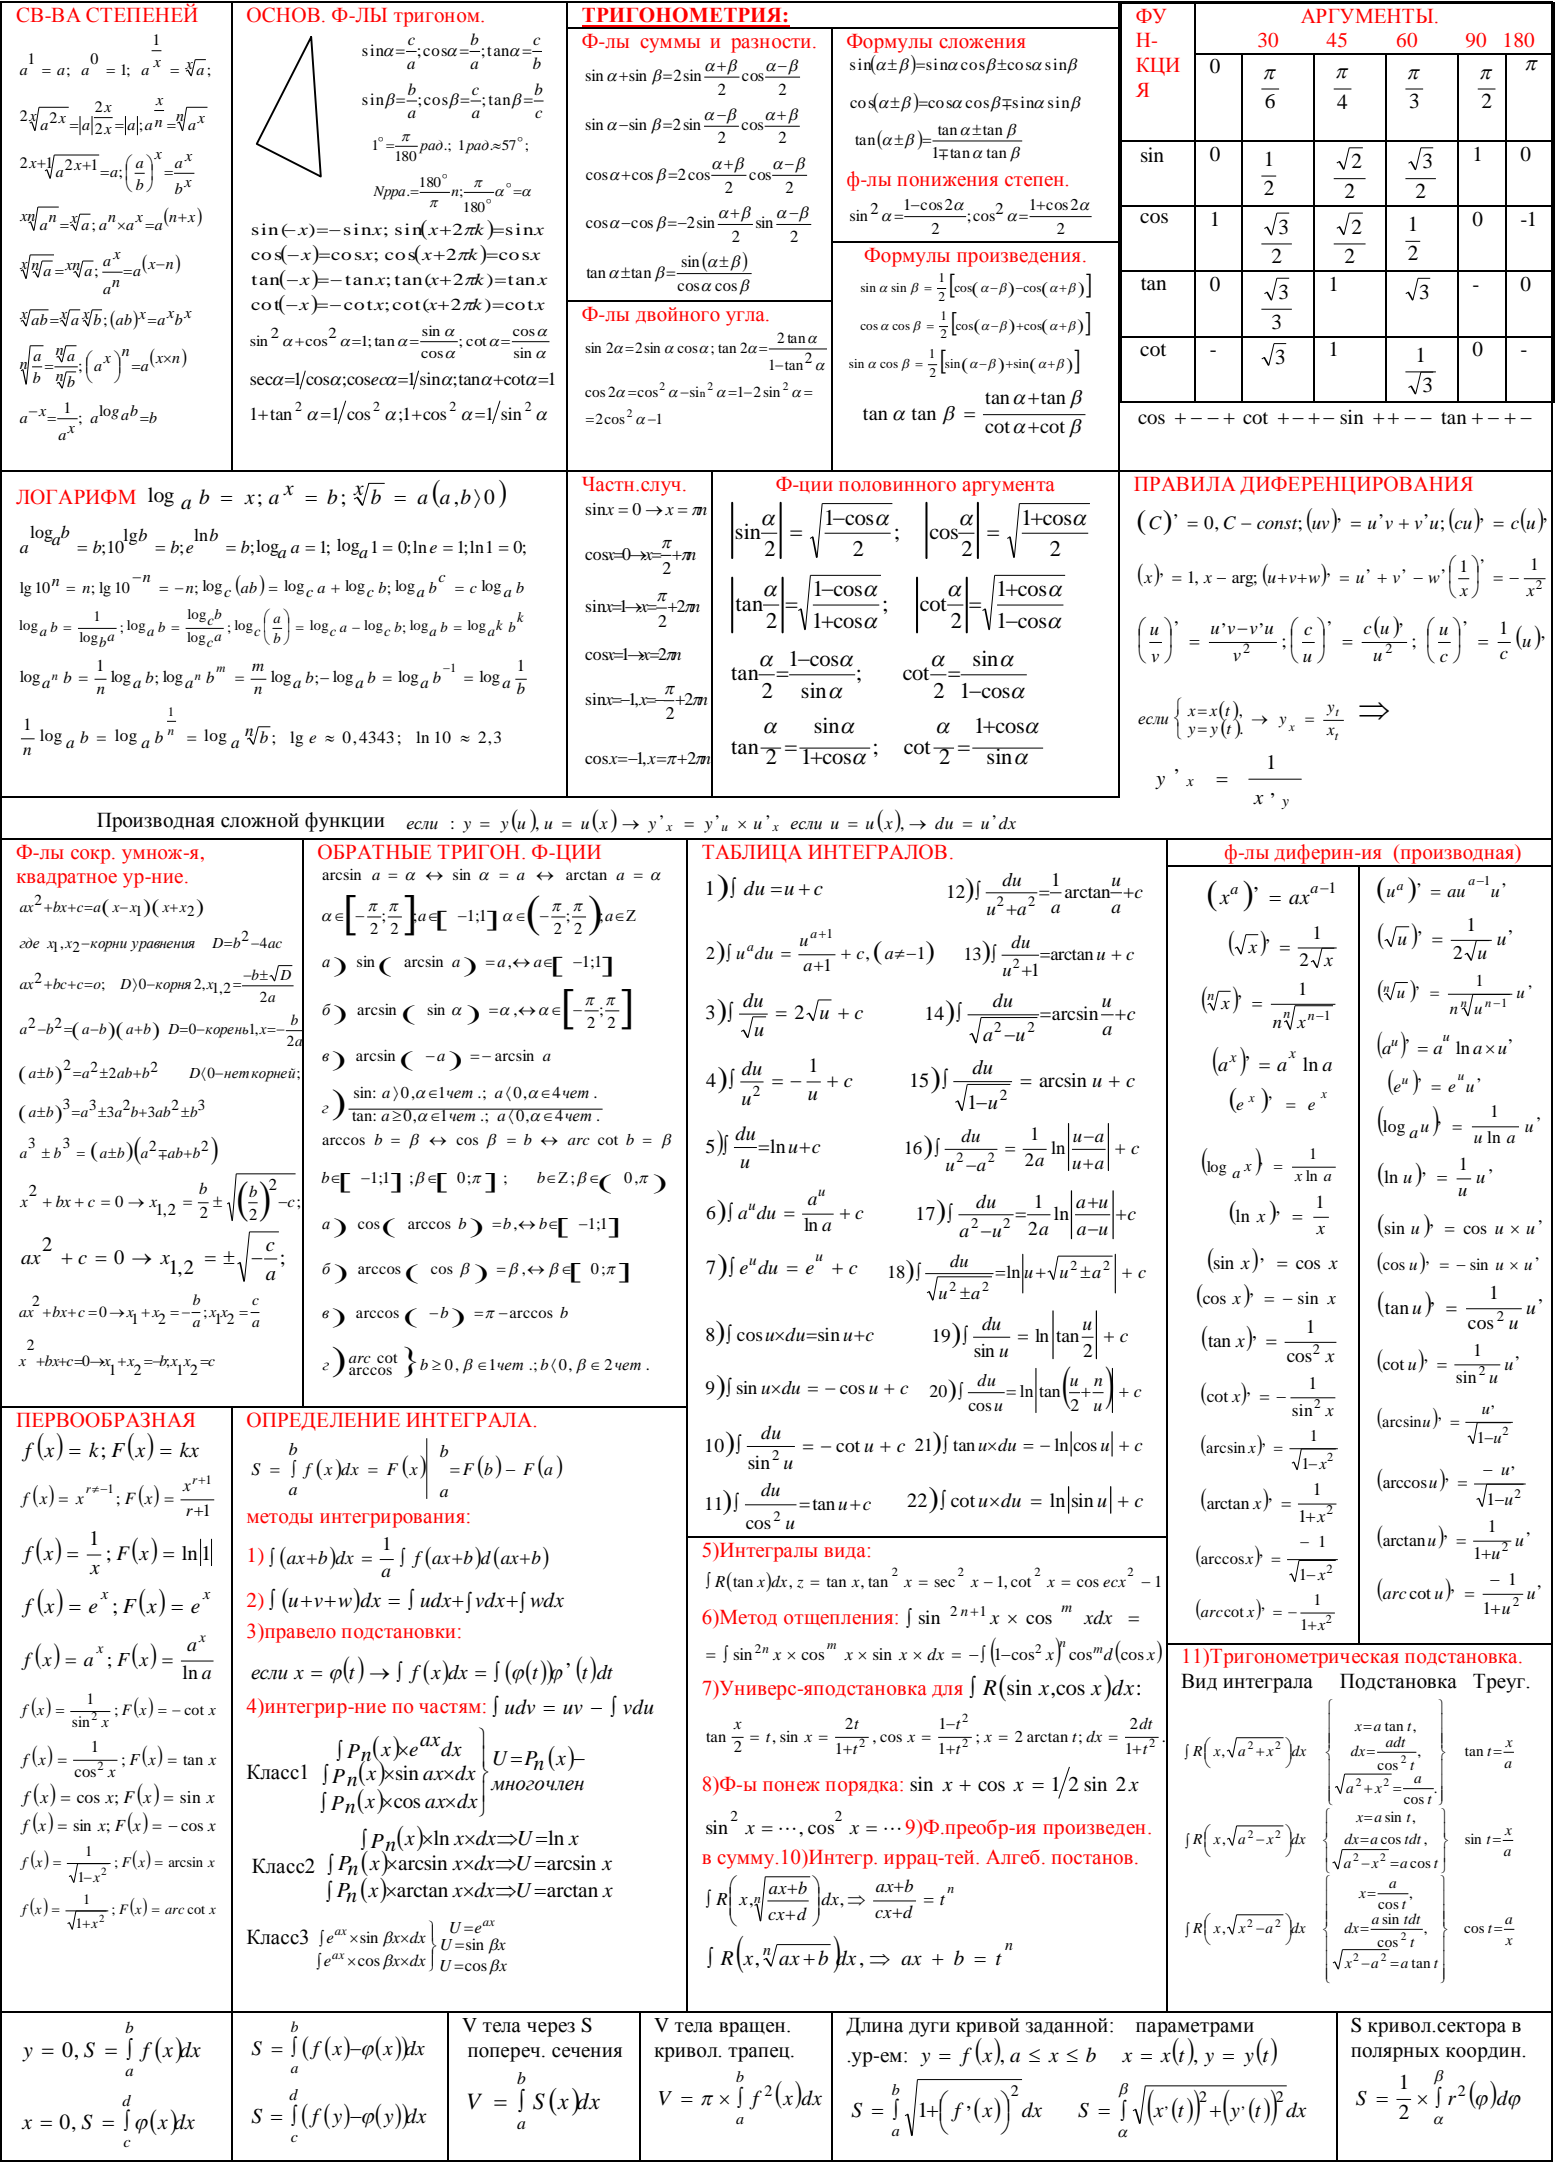 СВ-ВА СТЕПЕНЕЙ
a^1 = a; a^0 = 1; a^(1/x) = ˣ√a;
²ˣ√(a^(2x)) = |a|^(2x/2x) = |a|; a^(x/n) = ⁿ√(a^x)
²ˣ⁺¹√(a^(2x+1)) = a; (a/b)^x = a^x/b^x
ˣⁿ√(a^n) = ˣ√a; a^n × a^x = a^(n+x)
ˣ√(ⁿ√a) = ˣⁿ√a; a^x/a^n = a^(x−n)
ˣ√(ab) = ˣ√a ˣ√b; (ab)^x = a^x b^x
ⁿ√(a/b) = ⁿ√a/ⁿ√b; (a^x)^n = a^(x×n)
a^(−x) = 1/a^x; a^(log_a b) = b
ОСНОВ. Ф-ЛЫ тригоном.
sinα = c/a; cosα = b/a; tanα = c/b
sinβ = b/a; cosβ = c/a; tanβ = b/c
1° = π/180 рад.; 1рад.≈57°;
Nрра. = 180°/π n; π/180° α° = α
sin(−x) = −sinx; sin(x+2πk) = sinx
cos(−x) = cosx; cos(x+2πk) = cosx
tan(−x) = −tanx; tan(x+2πk) = tanx
cot(−x) = −cotx; cot(x+2πk) = cotx
sin² α + cos² α = 1; tan α = sin α/cos α; cot α = cos α/sin α
secα=1/cosα;cosecα=1/sinα;tanα+cotα=1
1+tan² α=1/cos² α;1+cos² α=1/sin² α
ТРИГОНОМЕТРИЯ:
Ф-лы суммы и разности.
sin α + sin β = 2sin (α+β)/2 cos (α−β)/2
sin α − sin β = 2sin (α−β)/2 cos (α+β)/2
cos α + cos β = 2cos (α+β)/2 cos (α−β)/2
cos α − cos β = −2sin (α+β)/2 sin (α−β)/2
tan α ± tan β = sin(α±β)/(cos α cos β)
Ф-лы двойного угла.
sin 2α = 2sin α cos α; tan 2α = 2 tan α/(1−tan² α)
cos 2α = cos² α − sin² α = 1−2 sin² α =
= 2cos² α − 1
Формулы сложения
sin(α±β) = sinα cosβ ± cosα sinβ
cos(α±β) = cosα cosβ ∓ sinα sinβ
tan(α±β) = (tan α ± tan β)/(1∓tan α tan β)
ф-лы понижения степен.
sin² α = (1−cos 2α)/2; cos² α = (1+cos 2α)/2
Формулы произведения.
sin α sin β = 1/2 [cos(α−β)−cos(α+β)]
cos α cos β = 1/2 [cos(α−β)+cos(α+β)]
sin α cos β = 1/2 [sin(α−β)+sin(α+β)]
tan α tan β = (tan α + tan β)/(cot α + cot β)
ФУН-КЦИЯ
АРГУМЕНТЫ.
30 45 60 90 180
0 π/6 π/4 π/3 π/2 π
sin 0 1/2 √2/2 √3/2 1 0
cos 1 √3/2 √2/2 1/2 0 -1
tan 0 √3/3 1 √3 - 0
cot - √3 1 1/√3 0 -
cos + − − + cot + − + − sin + + − − tan + − + −
ЛОГАРИФМ log_a b = x; a^x = b; ˣ√b = a (a,b⟩0)
a^(log_a b) = b; 10^(lg b) = b; e^(ln b) = b; log_a a = 1; log_a 1 = 0; ln e = 1; ln 1 = 0;
lg 10^n = n; lg 10^(−n) = −n; log_c (ab) = log_c a + log_c b; log_a b^c = c log_a b
log_a b = 1/log_b a; log_a b = log_c b/log_c a; log_c (a/b) = log_c a − log_c b; log_a b = log_(a^k) b^k
log_(a^n) b = 1/n log_a b; log_(a^n) b^m = m/n log_a b; −log_a b = log_a b^(−1) = log_a 1/b
1/n log_a b = log_a b^(1/n) = log_a ⁿ√b; lg e ≈ 0,4343; ln 10 ≈ 2,3
Частн.случ.
sinx = 0 → x = πn
cosx=0→x=π/2+πn
sinx=1→x=π/2+2πn
cosx=1→x=2πn
sinx=−1,x=−π/2+2πn
cosx=−1,x=π+2πn
Ф-ции половинного аргумента
|sin α/2| = √((1−cosα)/2); |cos α/2| = √((1+cosα)/2)
|tan α/2| = √((1−cosα)/(1+cosα)); |cot α/2| = √((1+cosα)/(1−cosα))
tan α/2 = (1−cosα)/sinα; cot α/2 = sinα/(1−cosα)
tan α/2 = sinα/(1+cosα); cot α/2 = (1+cosα)/sinα
ПРАВИЛА ДИФЕРЕНЦИРОВАНИЯ
(C)' = 0, C − const; (uv)' = u'v + v'u; (cu)' = c(u)'
(x)' = 1, x − arg; (u+v+w)' = u' + v' − w' (1/x)' = −1/x²
(u/v)' = (u'v−v'u)/v²; (c/u)' = c(u)'/u²; (u/c)' = 1/c (u)'
если { x=x(t), y=y(t). → y_x = y_t/x_t ⇒
y'_x = 1/x'_y
Производная сложной функции если : y = y(u), u = u(x) → y'_x = y'_u × u'_x если u = u(x), → du = u'dx
Ф-лы сокр. умнож-я,
квадратное ур-ние.
ax²+bx+c=a(x−x₁)(x+x₂)
где x₁,x₂−корни уравнения D=b²−4ac
ax²+bc+c=o; D⟩0−корня 2,x₁,₂=(−b±√D)/2a
a²−b²=(a−b)(a+b) D=0−корень1,x=−b/2a
(a±b)²=a²±2ab+b² D⟨0−нет корней;
(a±b)³=a³±3a²b+3ab²±b³
a³±b³ = (a±b)(a²∓ab+b²)
x² + bx + c = 0 → x₁,₂ = b/2 ± √((b/2)²−c);
ax² + c = 0 → x₁,₂ = ±√(−c/a);
ax²+bx+c=0→x₁+x₂=−b/a;x₁x₂=c/a
x²+bx+c=0→x₁+x₂=−b;x₁x₂=c
ОБРАТНЫЕ ТРИГОН. Ф-ЦИИ
arcsin a = α ↔ sin α = a ↔ arctan a = α
α∈[−π/2;π/2];a∈[−1;1] α∈(−π/2;π/2);a∈Z
а) sin(arcsin a)=a,↔a∈[−1;1]
б) arcsin(sin α)=α,↔α∈[−π/2;π/2]
в) arcsin(−a)=−arcsin a
г) sin: a⟩0,α∈1чет.; a⟨0,α∈4чет.
tan: a≥0,α∈1чет.; a⟨0,α∈4чет.
arccos b = β ↔ cos β = b ↔ arc cot b = β
b∈[−1;1];β∈[0;π]; b∈Z;β∈(0,π)
а) cos(arccos b)=b,↔b∈[−1;1]
б) arccos(cos β)=β,↔β∈[0;π]
в) arccos(−b)=π−arccos b
г) arc cot arccos } b≥0, β∈1чет.;b⟨0, β∈2чет.
ТАБЛИЦА ИНТЕГРАЛОВ.
1)∫ du = u + c 12)∫ du/(u²+a²) = 1/a arctan u/a + c
2)∫ u^a du = u^(a+1)/(a+1) + c, (a≠−1) 13)∫ du/(u²+1) = arctan u + c
3)∫ du/√u = 2√u + c 14)∫ du/√(a²−u²) = arcsin u/a + c
4)∫ du/u² = −1/u + c 15)∫ du/√(1−u²) = arcsin u + c
5)∫ du/u = ln u + c 16)∫ du/(u²−a²) = 1/2a ln|(u−a)/(u+a)| + c
6)∫ a^u du = a^u/ln a + c 17)∫ du/(a²−u²) = 1/2a ln|(a+u)/(a−u)| + c
7)∫ e^u du = e^u + c 18)∫ du/√(u²±a²) = ln|u+√(u²±a²)| + c
8)∫ cos u×du = sin u + c 19)∫ du/sin u = ln|tan u/2| + c
9)∫ sin u×du = −cos u + c 20)∫ du/cos u = ln|tan(u/2+n/u)| + c
10)∫ du/sin² u = −cot u + c 21)∫ tan u×du = −ln|cos u| + c
11)∫ du/cos² u = tan u + c 22)∫ cot u×du = ln|sin u| + c
ф-лы диферин-ия (производная)
(x^a)' = ax^(a−1)
(√x)' = 1/(2√x)
(ⁿ√x)' = 1/(n ⁿ√(x^(n−1)))
(a^x)' = a^x ln a
(e^x)' = e^x
(log_a x)' = 1/(x ln a)
(ln x)' = 1/x
(sin x)' = cos x
(cos x)' = −sin x
(tan x)' = 1/cos² x
(cot x)' = −1/sin² x
(arcsin x)' = 1/√(1−x²)
(arctan x)' = 1/(1+x²)
(arccos x)' = −1/√(1−x²)
(arc cot x)' = −1/(1+x²)
(u^a)' = au^(a−1)u'
(√u)' = 1/(2√u) u'
(ⁿ√u)' = 1/(n ⁿ√(u^(n−1))) u'
(a^u)' = a^u ln a×u'
(e^u)' = e^u u'
(log_a u)' = 1/(u ln a) u'
(ln u)' = 1/u u'
(sin u)' = cos u × u'
(cos u)' = −sin u × u'
(tan u)' = 1/cos² u u'
(cot u)' = 1/sin² u u'
(arcsin u)' = u'/√(1−u²)
(arccos u)' = −u'/√(1−u²)
(arctan u)' = 1/(1+u²) u'
(arc cot u)' = −1/(1+u²) u'
ПЕРВООБРАЗНАЯ
f(x) = k; F(x) = kx
f(x) = x^(r≠−1); F(x) = x^(r+1)/(r+1)
f(x) = 1/x; F(x) = ln|1|
f(x) = e^x; F(x) = e^x
f(x) = a^x; F(x) = a^x/ln a
f(x) = 1/sin² x; F(x) = −cot x
f(x) = 1/cos² x; F(x) = tan x
f(x) = cos x; F(x) = sin x
f(x) = sin x; F(x) = −cos x
f(x) = 1/√(1−x²); F(x) = arcsin x
f(x) = 1/√(1+x²); F(x) = arc cot x
ОПРЕДЕЛЕНИЕ ИНТЕГРАЛА.
S = ∫_a^b f(x)dx = F(x)|_a^b = F(b) − F(a)
методы интегрирования:
1) ∫(ax+b)dx = 1/a ∫ f(ax+b)d(ax+b)
2) ∫(u+v+w)dx = ∫udx+∫vdx+∫wdx
3)правело подстановки:
если x = φ(t) → ∫ f(x)dx = ∫(φ(t))φ'(t)dt
4)интегрир-ние по частям: ∫ udv = uv − ∫ vdu
Класс1 ∫P_n(x)×e^(ax)dx ∫P_n(x)×sin ax×dx ∫P_n(x)×cos ax×dx } U=P_n(x)− многочлен
∫P_n(x)×ln x×dx⇒U=ln x
Класс2 ∫P_n(x)×arcsin x×dx⇒U=arcsin x
∫P_n(x)×arctan x×dx⇒U=arctan x
Класс3 ∫e^(ax)×sin βx×dx ∫e^(ax)×cos βx×dx } U=e^(ax) U=sin βx U=cos βx
5)Интегралы вида:
∫R(tan x)dx, z = tan x, tan² x = sec² x − 1, cot² x = cos ecx² − 1
6)Метод отщепления: ∫ sin^(2n+1) x × cos^m xdx =
= ∫ sin^(2n) x × cos^m x × sin x × dx = −∫(1−cos² x)^n cos^m d(cos x)
7)Универс-яподстановка для ∫ R(sin x,cos x)dx:
tan x/2 = t, sin x = 2t/(1+t²), cos x = (1−t²)/(1+t²); x = 2 arctan t; dx = 2dt/(1+t²).
8)Ф-ы понеж порядка: sin x + cos x = 1/2 sin 2x
sin² x = ⋯, cos² x = ⋯ 9)Ф.преобр-ия произведен.
в сумму.10)Интегр. иррац-тей. Алгеб. постанов.
∫R(x, ⁿ√((ax+b)/(cx+d)))dx, ⇒ (ax+b)/(cx+d) = t^n
∫ R(x, ⁿ√(ax+b))dx, ⇒ ax + b = t^n
11)Тригонометрическая подстановка.
Вид интеграла Подстановка Треуг.
∫R(x,√(a²+x²))dx { x=a tan t, dx=adt/cos² t, √(a²+x²)=a/cos t. } tan t=x/a
∫R(x,√(a²−x²))dx { x=a sin t, dx=a cos tdt, √(a²−x²)=a cos t } sin t=x/a
∫R(x,√(x²−a²))dx { x=a/cos t, dx=a sin tdt/cos² t, √(x²−a²)=a tan t } cos t=a/x
y = 0, S = ∫_a^b f(x)dx
x = 0, S = ∫_c^d φ(x)dx
S = ∫_a^b (f(x)−φ(x))dx
S = ∫_c^d (f(y)−φ(y))dx
V тела через S
попереч. сечения
V = ∫_a^b S(x)dx
V тела вращен.
кривол. трапец.
V = π × ∫_a^b f²(x)dx
Длина дуги кривой заданной: параметрами
.ур-ем: y = f(x), a ≤ x ≤ b x = x(t), y = y(t)
S = ∫_a^b √(1+(f'(x))²)dx S = ∫_α^β √((x'(t))²+(y'(t))²)dx
S кривол.сектора в
полярных координ.
S = 1/2 × ∫_α^β r²(φ)dφ